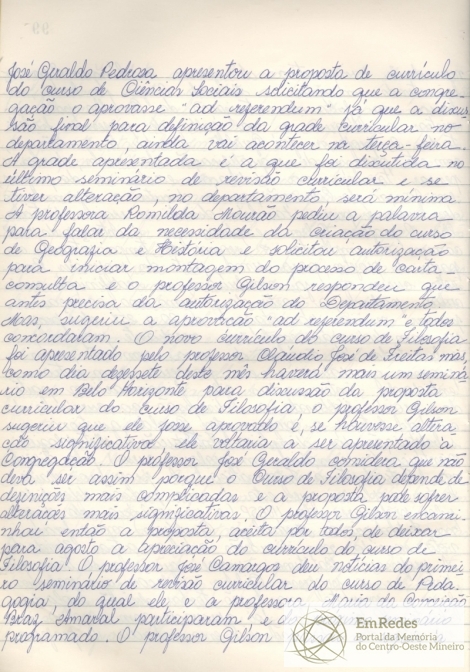 José Geraldo Pedrosa apresentou a proposta de currículo
do curso de Ciências Sociais solicitando que a congre-
gação o aprovasse "ad referendum" já que a discus
são final para definição da grade curricular no
departamento, ainda vai acontecer na terça-feira.
A grade apresentada é a que foi discutida no
último seminário de revisão curricular e se
tiver alteração, no departamento, será mínima.
A professora Romilda Mourão pediu a palavra
para falar da necessidade da criação do curso
de Geografia e História e solicitou autorização
para iniciar montagem do processo de carta-
consulta e o professor Gilson respondeu que
antes precisa da autorização do Departamento.
Mas, sugeriu a aprovação "ad referendum" e todos
concordaram. O novo currículo do curso de Filosofia
foi apresentado pelo professor José de Freitas mas,
como dia dezessete deste mês haverá mais um seminá
rio em Belo Horizonte para discussão da proposta
curricular do Curso de Filosofia, o professor Gilson
sugeriu que ele fosse aprovado e, se houvesse altera
ção significativa, ele voltaria a ser apresentado à
Congregação. O professor José Geraldo considera que não
deva ser assim porque o Curso de Filosofia depende de
definições mais complicadas e a proposta pode sofrer
alterações mais significativas. O professor Gilson encami
nhou então a proposta, aceita por todos, de deixar
para agosto a apreciação do currículo do curso de
Filosofia. O professor José Camargos deu notícias do primei
ro seminário de revisão curricular do curso de Peda
gogia, do qual ele e a professora Maria da Conceição
Amaral participaram e
programado. O professor Gilson
EmRedes
Portal da Memória
do Centro-Oeste Mineiro